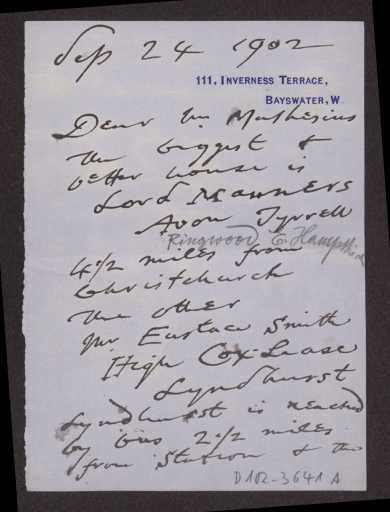 Sep 24 1902
111, INVERNESS TERRACE,
BAYSWATER, W.
Dear Mr Mathesius
The biggest &
better house is
Lord Manners
Avon Tyrrell
Ringwood Hampshire
4 1/2 miles from
Christchurch
The other
Mr Eustace Smith
High Cox Lease
Lyndhurst
Lyndhurst is reached
by bus 2 1/2 miles
from station & the
D102-3641 A